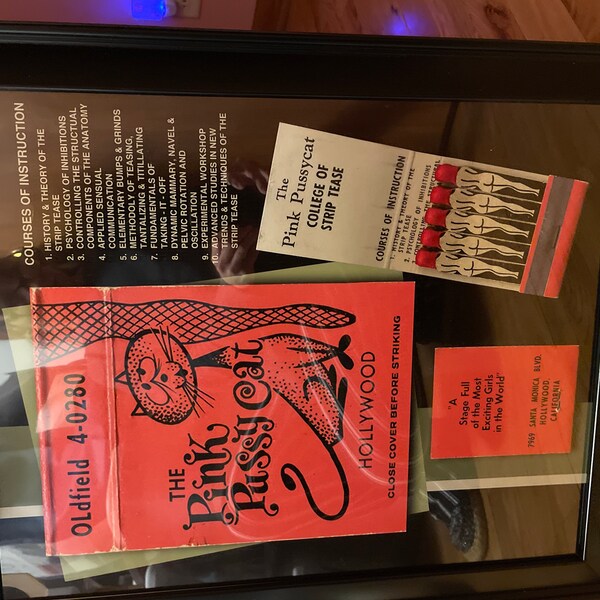 COURSES OF INSTRUCTION
1. HISTORY & THEORY OF THE
STRIP TEASE
2. PSYCHOLOGY OF INHIBITIONS
3. CONTROLLING THE STRUCTUAL
COMPONENTS OF THE ANATOMY
4. APPLIED SENSUAL
COMMUNICATION
5. ELEMENTARY BUMPS & GRINDS
6. METHODOLY OF TEASING,
TANTALIZING & TITILLATING
7. FUNDAMENTALS OF
TAKING - IT - OFF
8. DYNAMIC MAMMARY, NAVEL &
PELVIC ROTATION AND
OSCILLATION
9. EXPERIMENTAL WORKSHOP
10. ADVANCED STUDIES IN NEW
TRENDS & TECHNIQUES OF THE
STRIP TEASE
The
Pink Pussycat
COLLEGE OF
STRIP TEASE
COURSES OF INSTRUCTION
1. HISTORY & THEORY OF THE
STRIP TEASE
2. PSYCHOLOGY OF INHIBITIONS
Oldfield 4-0280
THE
Pink
Pussy Cat
HOLLYWOOD
CLOSE COVER BEFORE STRIKING
"A
Stage Full
of the Most
Exciting Girls
in the World"
7969 SANTA MONICA BLVD.
HOLLYWOOD,
CALIFORNIA